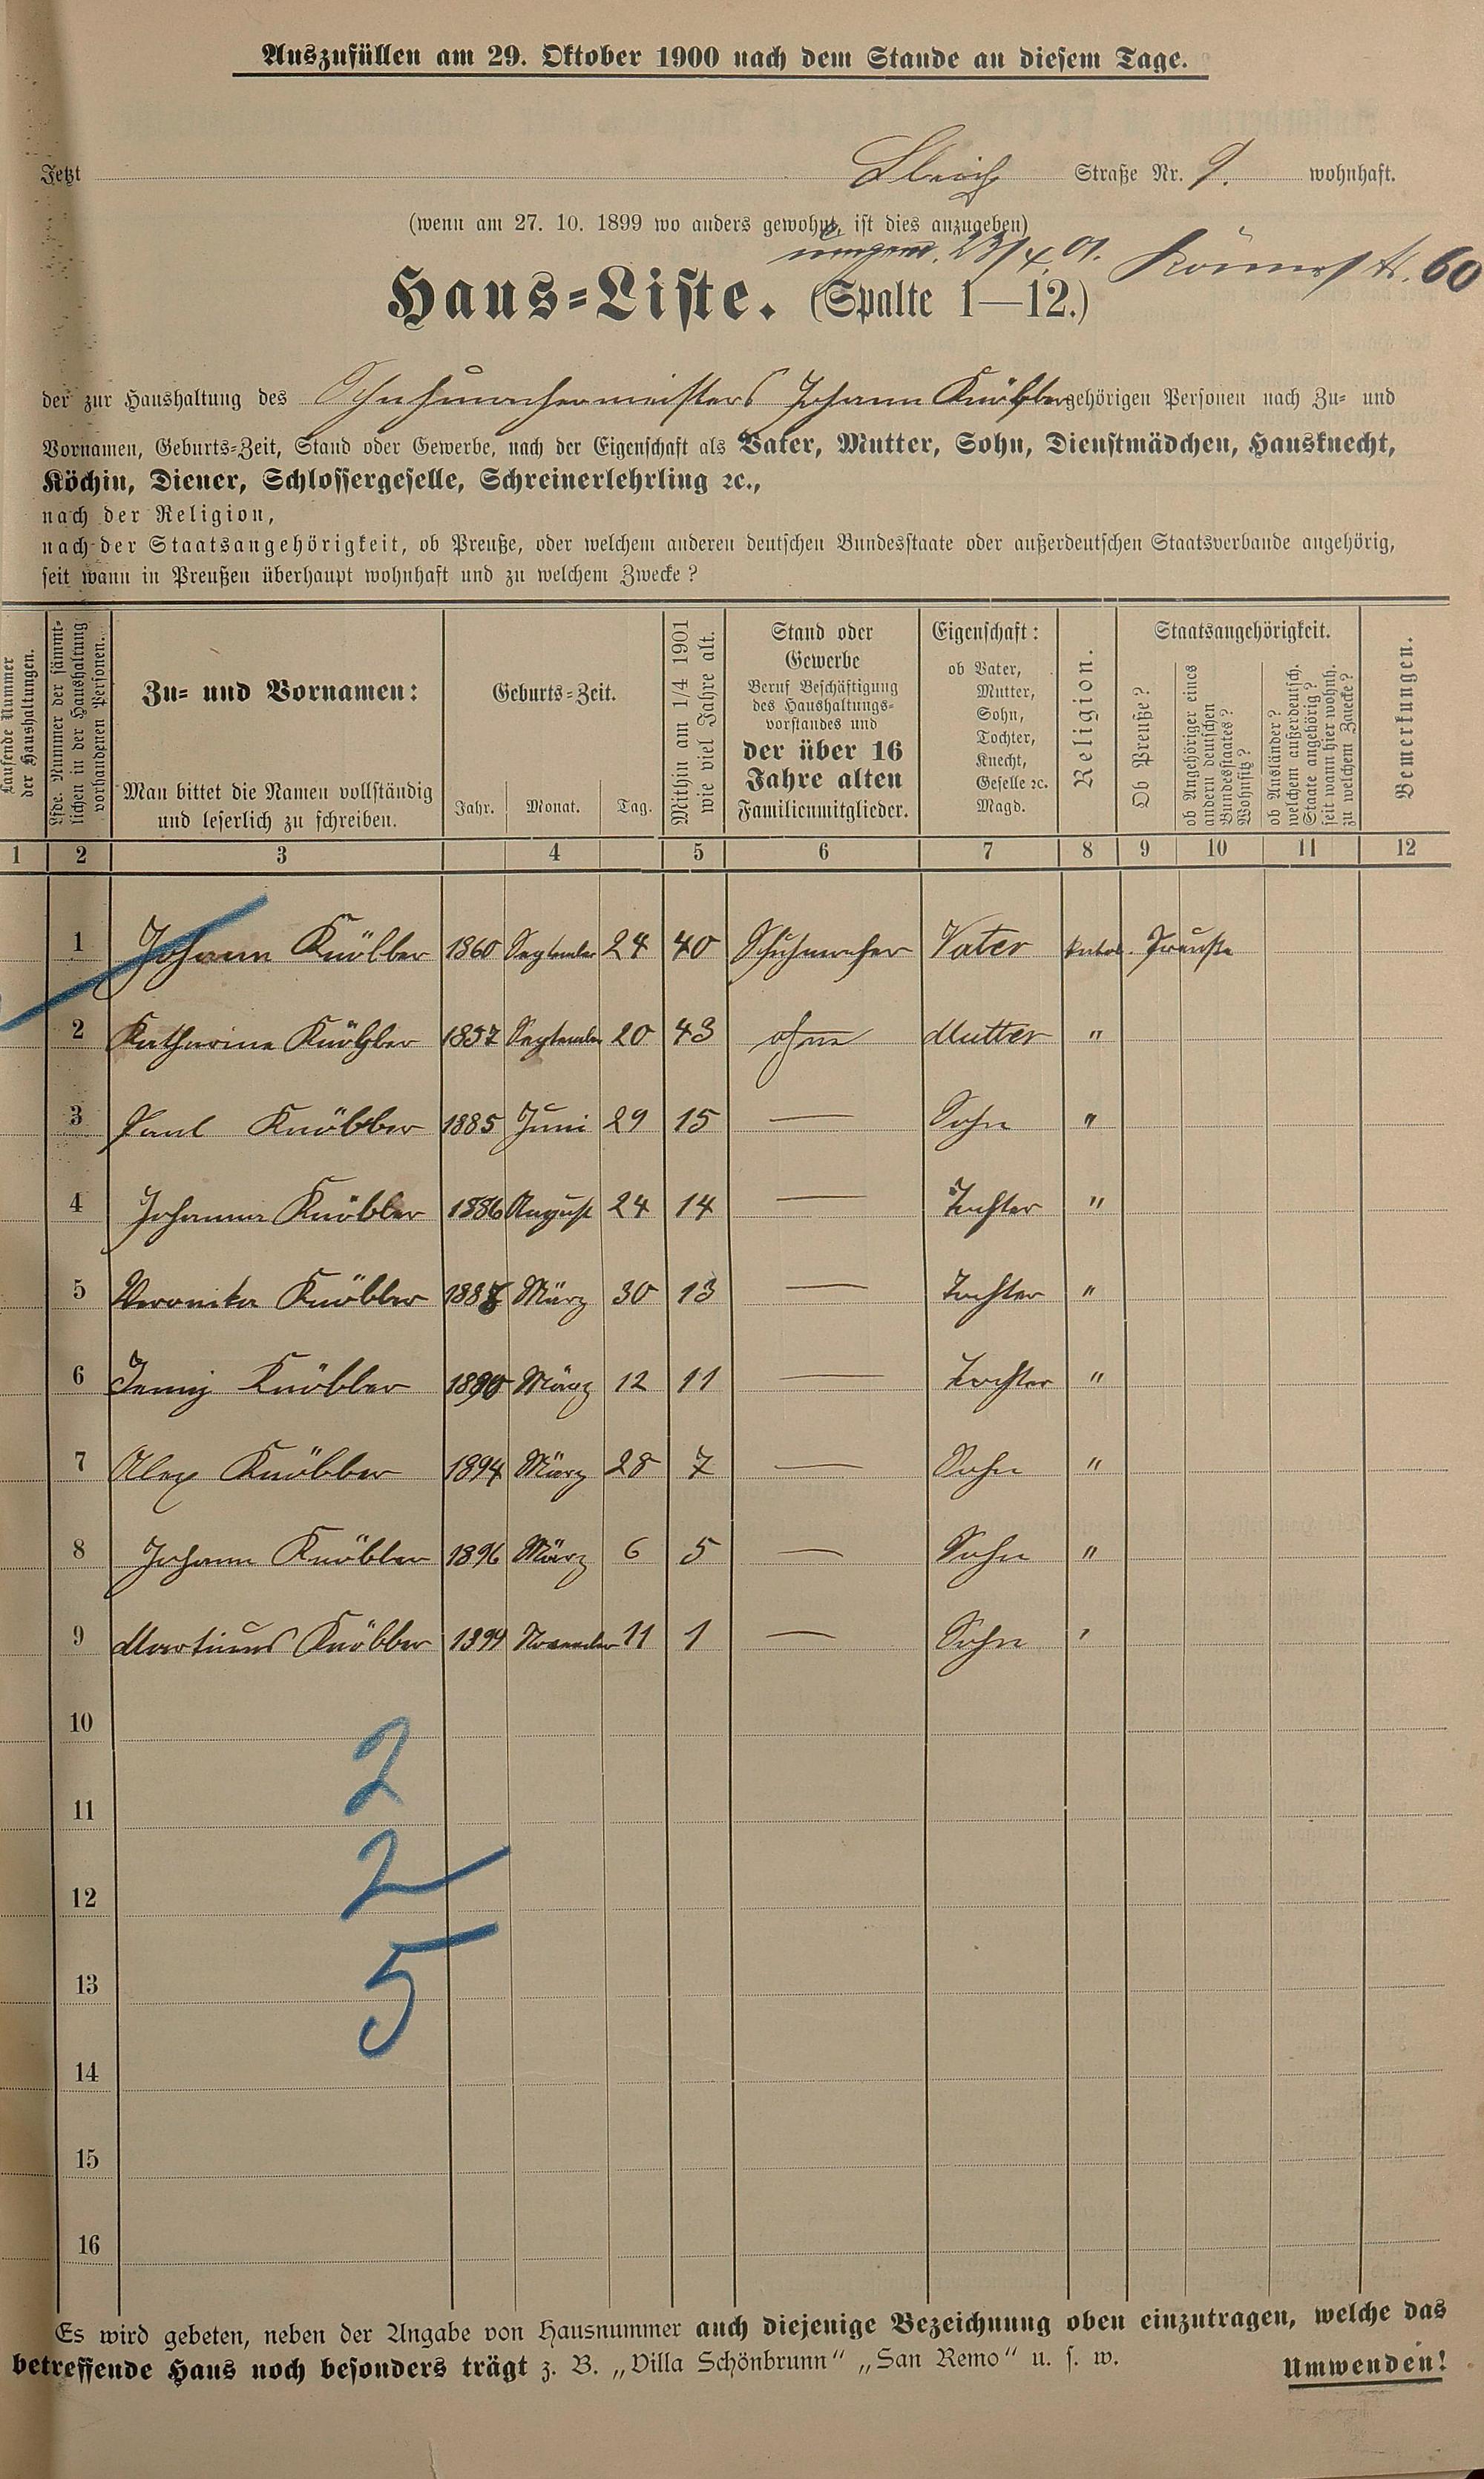 Auszufüllen am 29. Oktober 1900 nach dem Stande an diesem Tage.
Jetzt Straße Nr. 9. wohnhaft.
(wenn am 27. 10. 1899 wo anders gewohnt, ist dies anzugeben)
23/4. 01. 60
Haus-Liste. (Spalte 1—12.)
der zur Haushaltung des Schuhmachermeisters Johann Knöbber gehörigen Personen nach Zu- und
Vornamen, Geburts-Zeit, Stand oder Gewerbe, nach der Eigenschaft als Vater, Mutter, Sohn, Dienstmädchen, Hausknecht,
Köchin, Diener, Schlossergeselle, Schreinerlehrling ꝛc.,
nach der Religion,
nach der Staatsangehörigkeit, ob Preuße, oder welchem anderen deutschen Bundesstaate oder außerdeutschen Staatsverbande angehörig,
seit wann in Preußen überhaupt wohnhaft und zu welchem Zwecke?
Laufende Nummer
der Haushaltungen.
Lfde. Nummer der sämmt-
lichen in der Haushaltung
vorhandenen Personen.
Zu- und Vornamen:
Man bittet die Namen vollständig
und leserlich zu schreiben.
Geburts-Zeit.
Jahr. Monat. Tag.
Mithin am 1/4 1901
wie viel Jahre alt.
Stand oder
Gewerbe
Beruf Beschäftigung
des Haushaltungs-
vorstandes und
der über 16
Jahre alten
Familienmitglieder.
Eigenschaft:
ob Vater,
Mutter,
Sohn,
Tochter,
Knecht,
Geselle ꝛc.
Magd.
Religion.
Staatsangehörigkeit.
Ob Preuße?
ob Angehöriger eines
andern deutschen
Bundesstaates?
Wohnsitz?
ob Ausländer?
welchem außerdeutsch.
Staate angehörig?
seit wann hier wohnh.
zu welchem Zwecke?
Bemerkungen.
1 2 3 4 5 6 7 8 9 10 11 12
1 Johann Knöbber 1860 September 24 40 Schuhmacher Vater kathol. Preuße
2 Katharina Knöbber 1857 September 20 43 ohne Mutter "
3 Paul Knöbber 1885 Juni 29 15 — Sohn "
4 Johanna Knöbber 1886 August 24 14 — Tochter "
5 Veronika Knöbber 1888 März 30 13 — Tochter "
6 Jenny Knöbber 1890 März 12 11 — Tochter "
7 Alex Knöbber 1894 März 28 7 — Sohn "
8 Johann Knöbber 1896 März 6 5 — Sohn "
9 Martinus Knöbber 1899 November 11 1 — Sohn "
10
2
11
2
12
5
13
14
15
16
Es wird gebeten, neben der Angabe von Hausnummer auch diejenige Bezeichnung oben einzutragen, welche das
betreffende Haus noch besonders trägt z. B. „Villa Schönbrunn“ „San Remo“ u. s. w.
Umwenden!